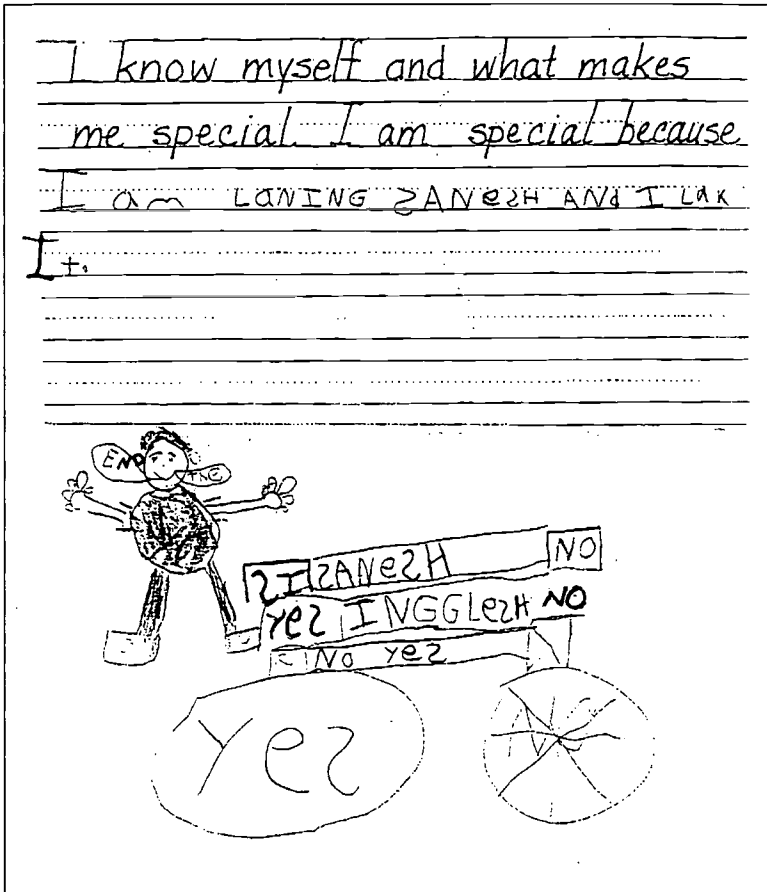 I know myself and what makes
me special. I am special because
I am LaNING SANeSH ANd I Lak
It.
END THE
SI SANeSH NO
Yes INGGLeSH NO
NO Yes
Yes
NO